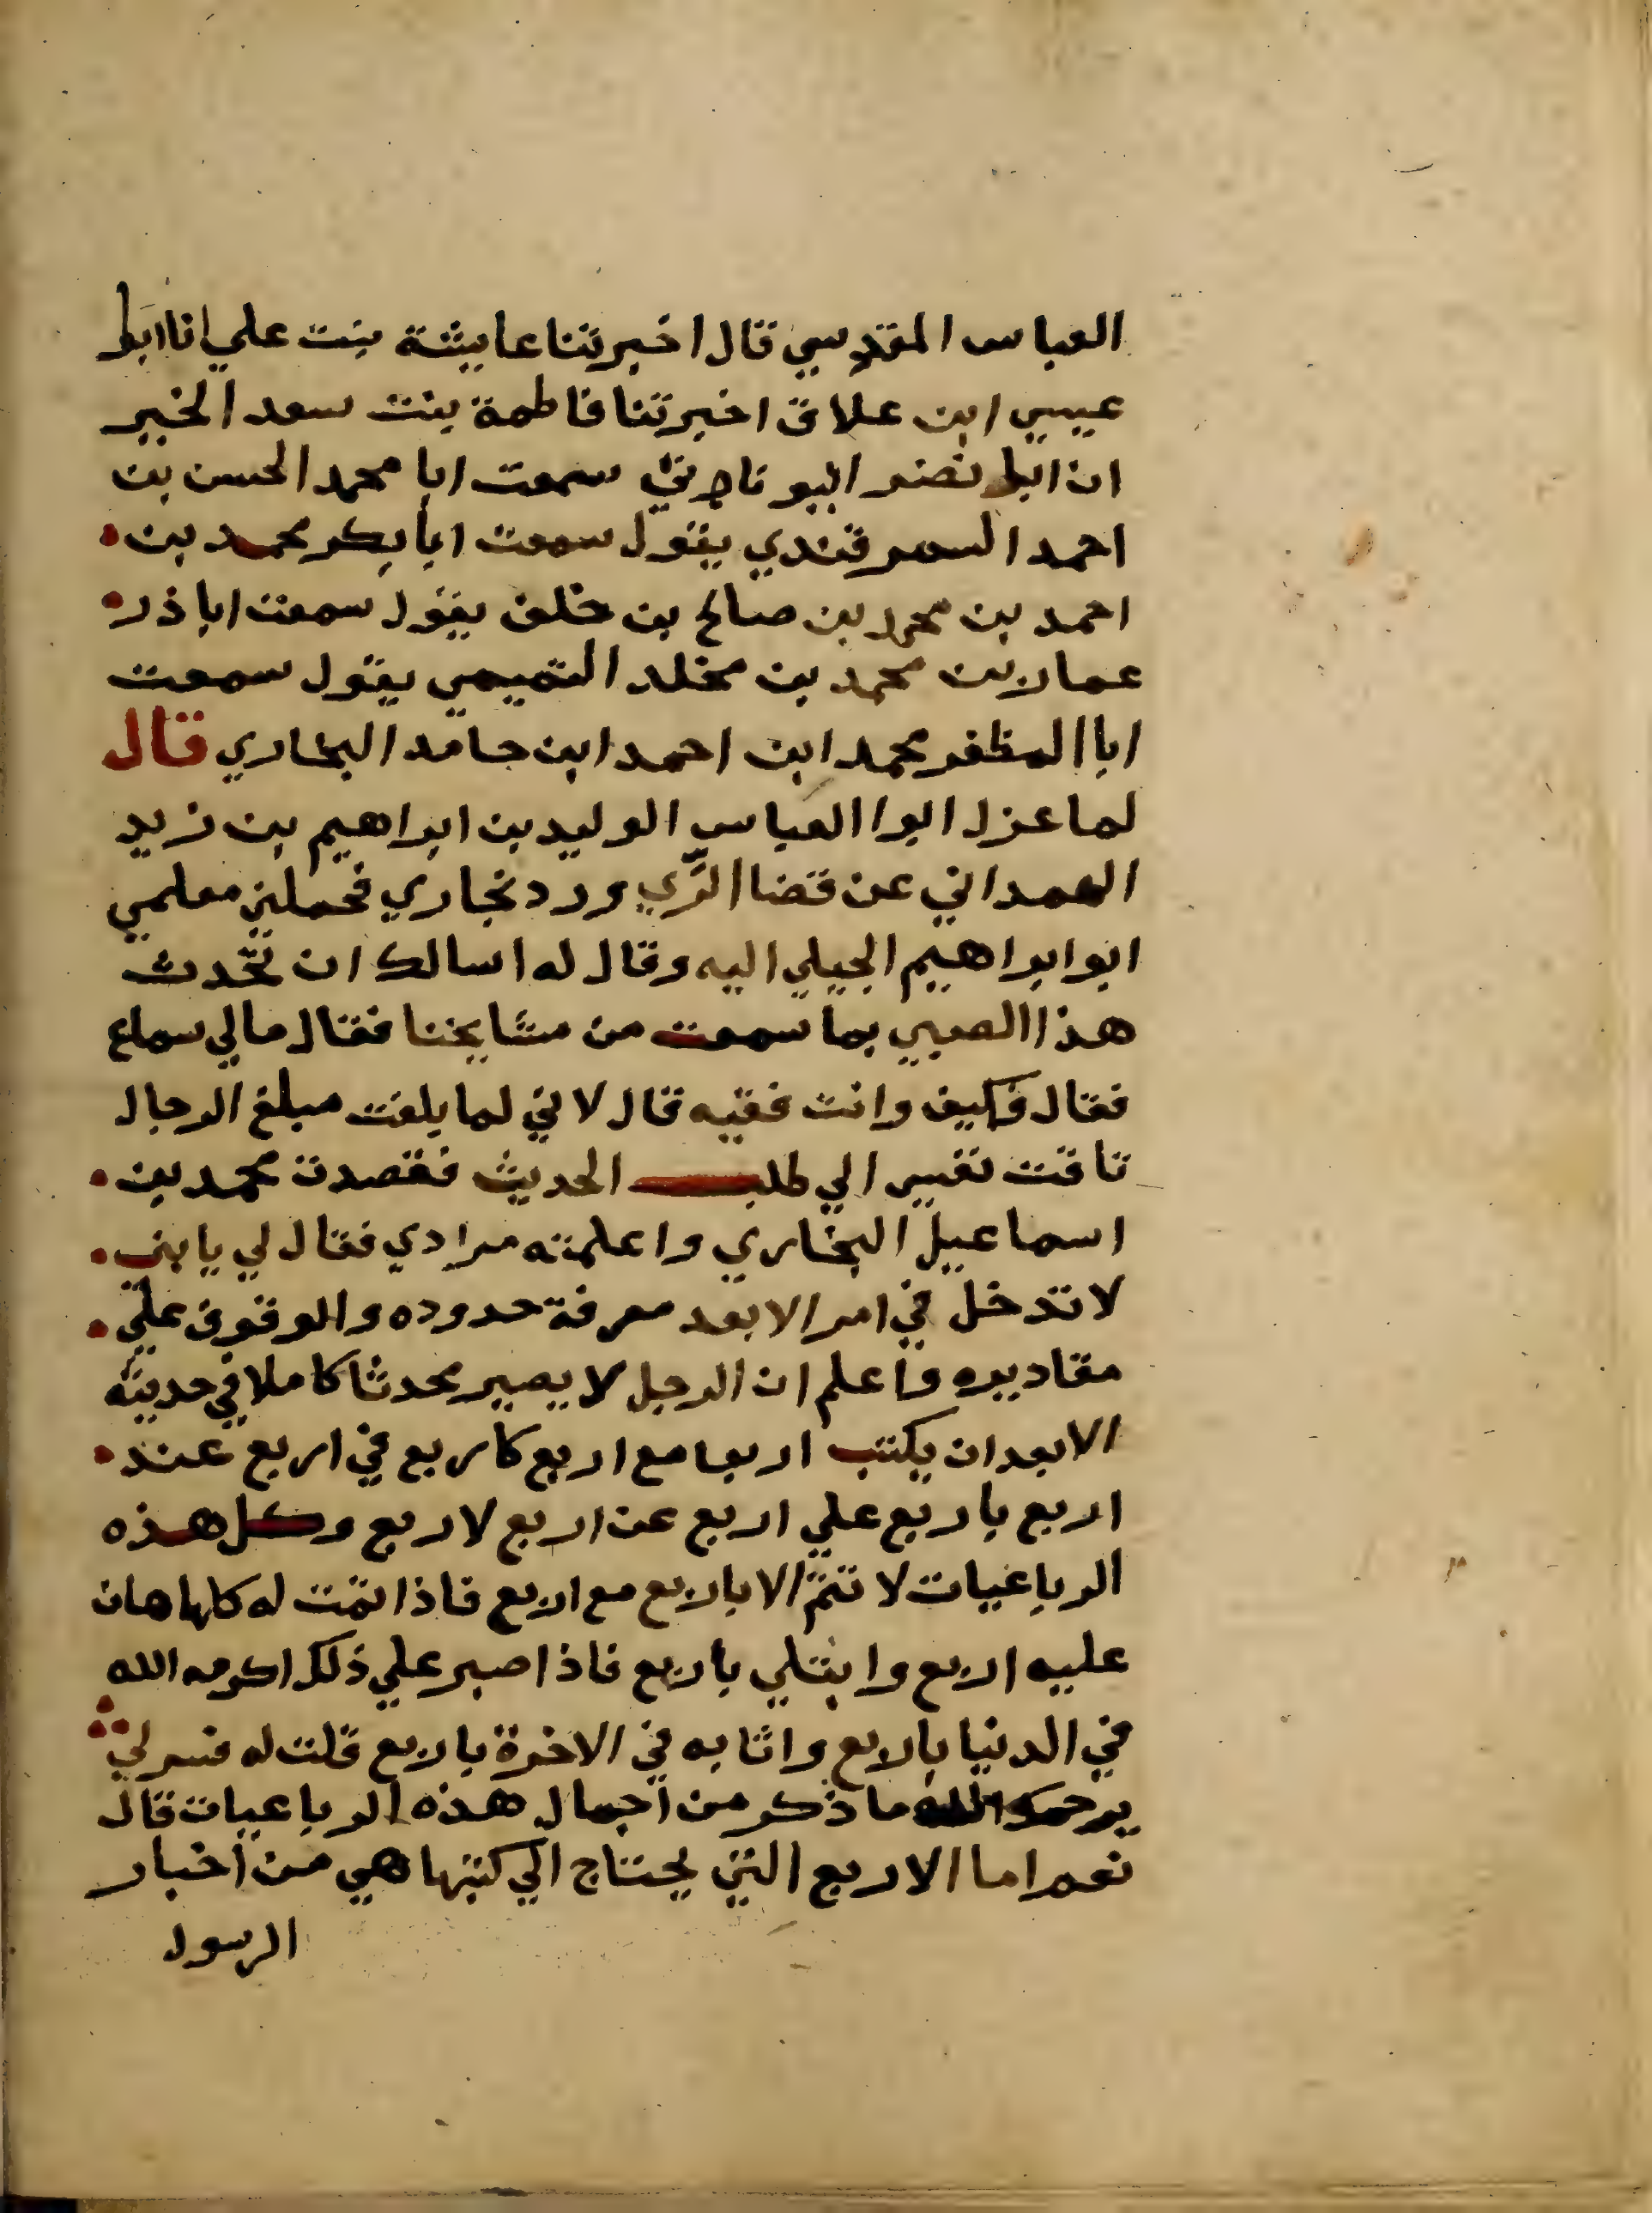 العباس المقدسي قال اخبرتنا عايشة بنت علي انا ابو
عيسي ابن علاق اخبرتنا فاطمة بنت سعد الخير
ان ابا نصر اليونارتي سمعت ابا محمد الحسن بن
احمد السمرقندي يقول سمعت ابا بكر محمد بن
احمد بن محمد بن صالح بن خلف يقول سمعت ابا ذر
عمار بن محمد بن مخلد التميمي يقول سمعت
ابا المظفر محمد ابن احمد ابن حامد البخاري قال
لما عزل ابوا العباس الوليد بن ابراهيم بن زيد
الهمداني عن قضا الرَّي ورد بخاري فحملني معلمي
ابو ابراهيم الجيلي اليه وقال له اسالك ان تحّدث
هذا الصبي بما سمعت من مشايخنا فقال مالي سماع
فقال فكيف وانت فقيه قال لاني لما بلغت مبلغ الرجال
تاقت نفسي الي طلب الحديث فقصدت محمد بن
اسماعيل البخاري واعلمته مرادي فقال لي يا بني
لا تدخل في امر الا بعد معرفة حدوده والوقوف علي
مقاديره واعلم ان الرجل لا يصير محدثا كاملا في حديثه
الا بعد ان يكتب اربعا مع اربع كاربع في اربع عند
اربع باربع علي اربع عن اربع لاربع وكل هذه
الرباعيات لا تتمّ الا باربع مع اربع فاذا تمت له كلها هان
عليه اربع وابتلي باربع فاذا صبر علي ذلك اكرمه الله
في الدنيا باربع واثابه في الاخرة باربع قلت له فسر لي
يرحمك الله ما ذكر من اجمال هذه الرباعيات قال
نعم اما الاربع التي يحتاج الي كتبها هي من اخبار
الرسول